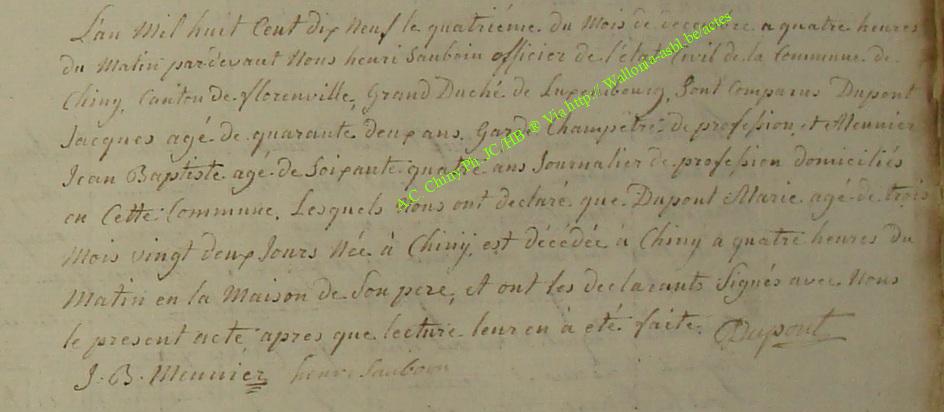 L'an Mil huit Cent dix Neuf le quatriéme du Mois de decembre a quatre heures
du Matin pardevant Nous henri Sauboin officier de l'état Civil de la Commune de
Chiny, Canton de florenville, Grand Duché de Luxembourg, Sont Comparus Dupont
Jacques agé de quarante deux ans, Garde Champêtre de profession, et Meunier
Jean Baptiste age de Soixante quatre ans Journalier de profession domiciliés
en Cette Commune, Lesquels Nous ont declaré que Dupont Marie agé de trois
Mois vingt deux Jours Née à Chiny, est décédée à Chiny a quatre heures du
Matin en la Maison de Son pere, et ont les declarants Signés avec Nous
le present acte apres que lecture leur en à eté faite. Dupont
J. B. Meunier henri Sauboin
A.C. Chiny Ph. JC/HB ® Via http://Wallonia-asbl.be/actes